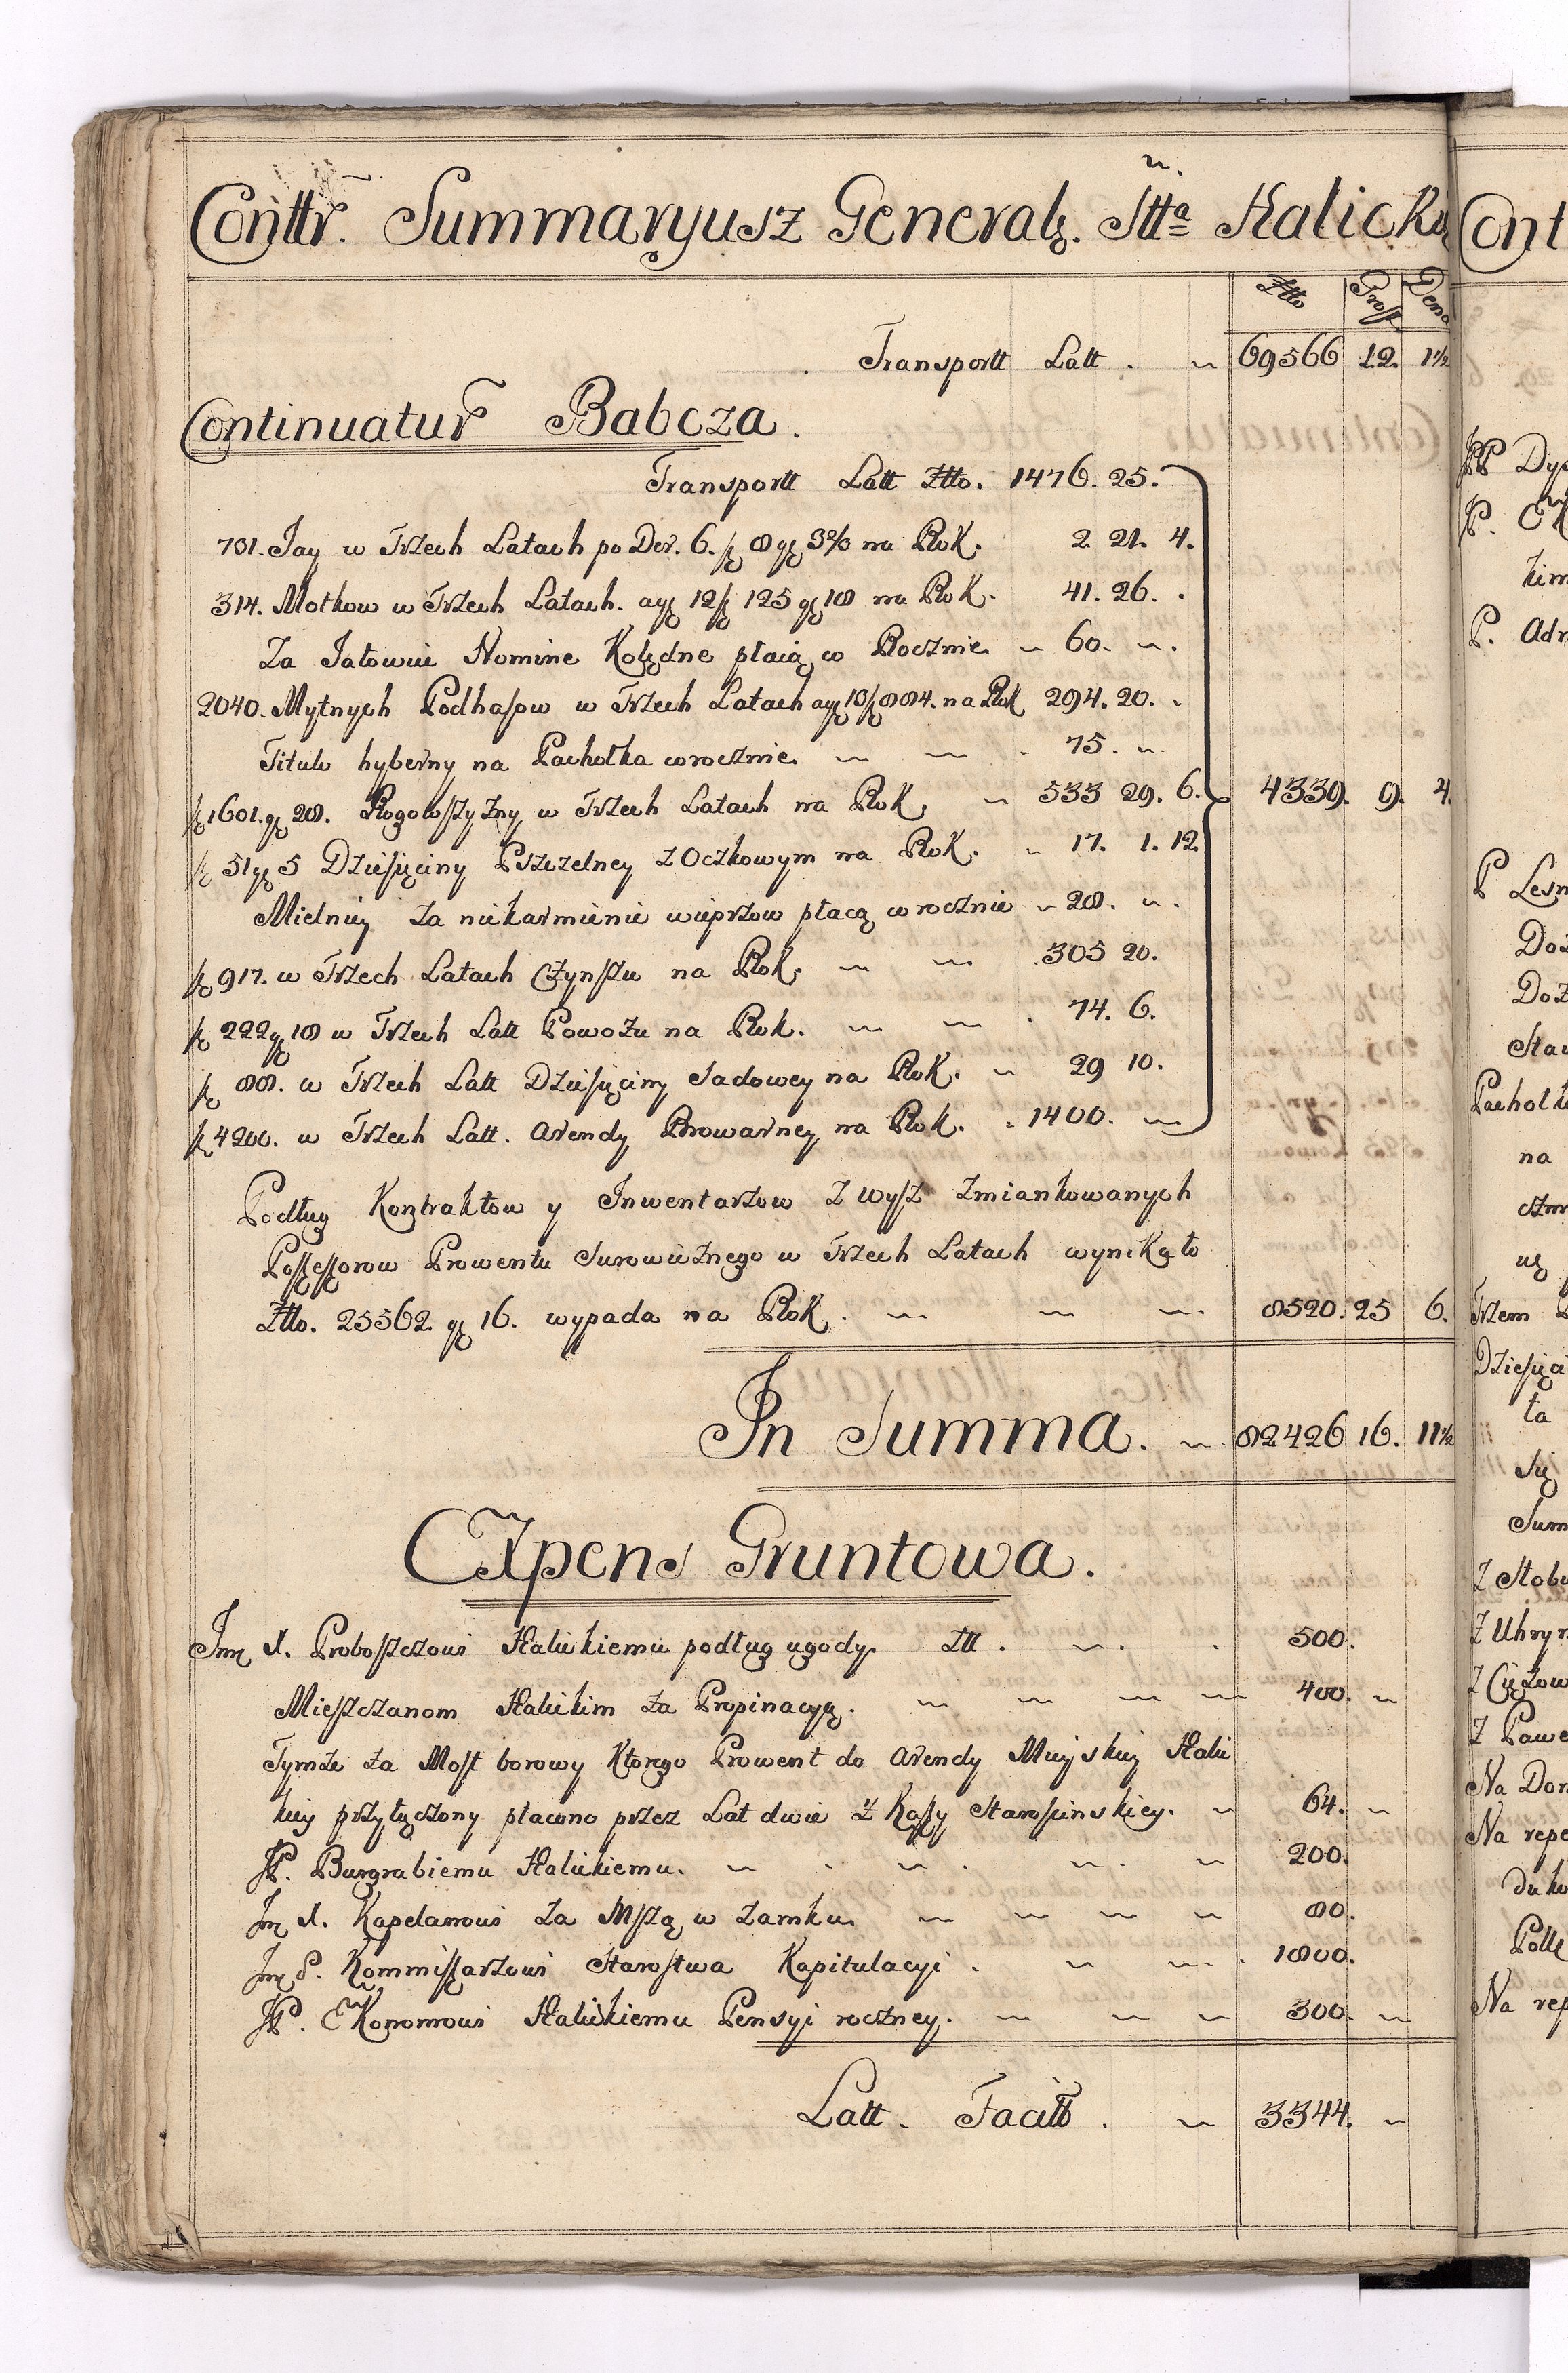 Conttr. Summaryusz Generalz. Stta Halicki
Ztto Gross Dena
Transportt Latt. 69566 12. 1½
Continuatur Babcza.
Transportt Latt Ztto. 1476. 25.
731. Jay w Trzech Latach po Der. 6. na Rok. 2. 21. 4.
314. Motkow w Trzech Latach. a gz 12 fz 125 gz 18 na Rok. 41. 26.
Za Jałowice Nomine Kolędne płacią co Rocznie 60.
2040. Mytnych Podhaſow w Trzech Latach a gz 13 fz 884. na Rok 294. 20.
Titulo hyberny na Pachołka corocznie. 75.
fz 1601. gz 28. Rogowszyzny w Trzech Latach na Rok 533 29. 6. 4339. 9. 4.
fz 51 gz 5 Dzieſięciny Pszczelney z Oczkowym na Rok. 17. 1. 12
Mielnicy za niekarmienie wieprzow płacą corocznie 28.
fz 917. w Trzech Latach Czynſzu na Rok. 305 20.
fz 222 gz 18 w Trzech Latt Powozu na Rok. 74. 6.
fz 88. w Trzech Latt Dzieſięciny Sadowey na Rok. 29 10.
fz 4200. w Trzech Latt. Arendy Browarney na Rok. 1400.
Podług Kontraktow y Inwentarzow z wyſz zmiankowanych
Poſſeſſorow Prowentu Surowicznego w Trzech Latach wynikało
Ztto. 25562. gz 16. wypada na Rok. 8520. 25 6.
In Summa. 82426 16. 11½
Expens Gruntowa.
Jmę X. Proboſzczowi Halickiemu podług ugody. Ztt. 500.
Mieſzczanom Halickim za Propinacyą. 400.
Tymże za Moſt borowy Ktorego Prowent do Arendy Mieyskiey Hali
kiey przyłączony płacono przez Lat dwie z Kaſſy Staroſcinskiey. 64.
JP. Burgrabiemu Halickiemu. 200.
Jmę X. Kapelanowi za Mſzą w Zamku. 80.
Jmę P. Kommiſſarzowi Staroſtwa Kapitulacyi. 1800.
JP. Ekonomowi Halickiemu Pensyi roczney. 300.
Latt. Facitt. 3344.
Cont
P. Adr
P Leſn
Pachołk
na
Trzem
Dzieſięci
ta
Się
Sum
Z Stobu
Z Uhryn
Z Ciężow
Z Pawe
Na Dor
Na repe
Na rep